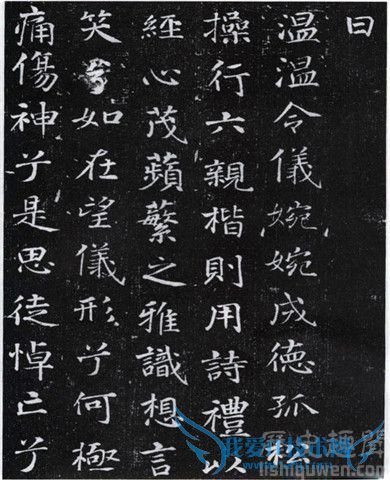 曰
温温令儀婉婉成德孤松
操行六親楷則用詩禮以
經心茂蘋蘩之雅識想言
笑兮如在望儀形兮何極
痛傷神兮是思徒悼亡兮
lishiquwen.com